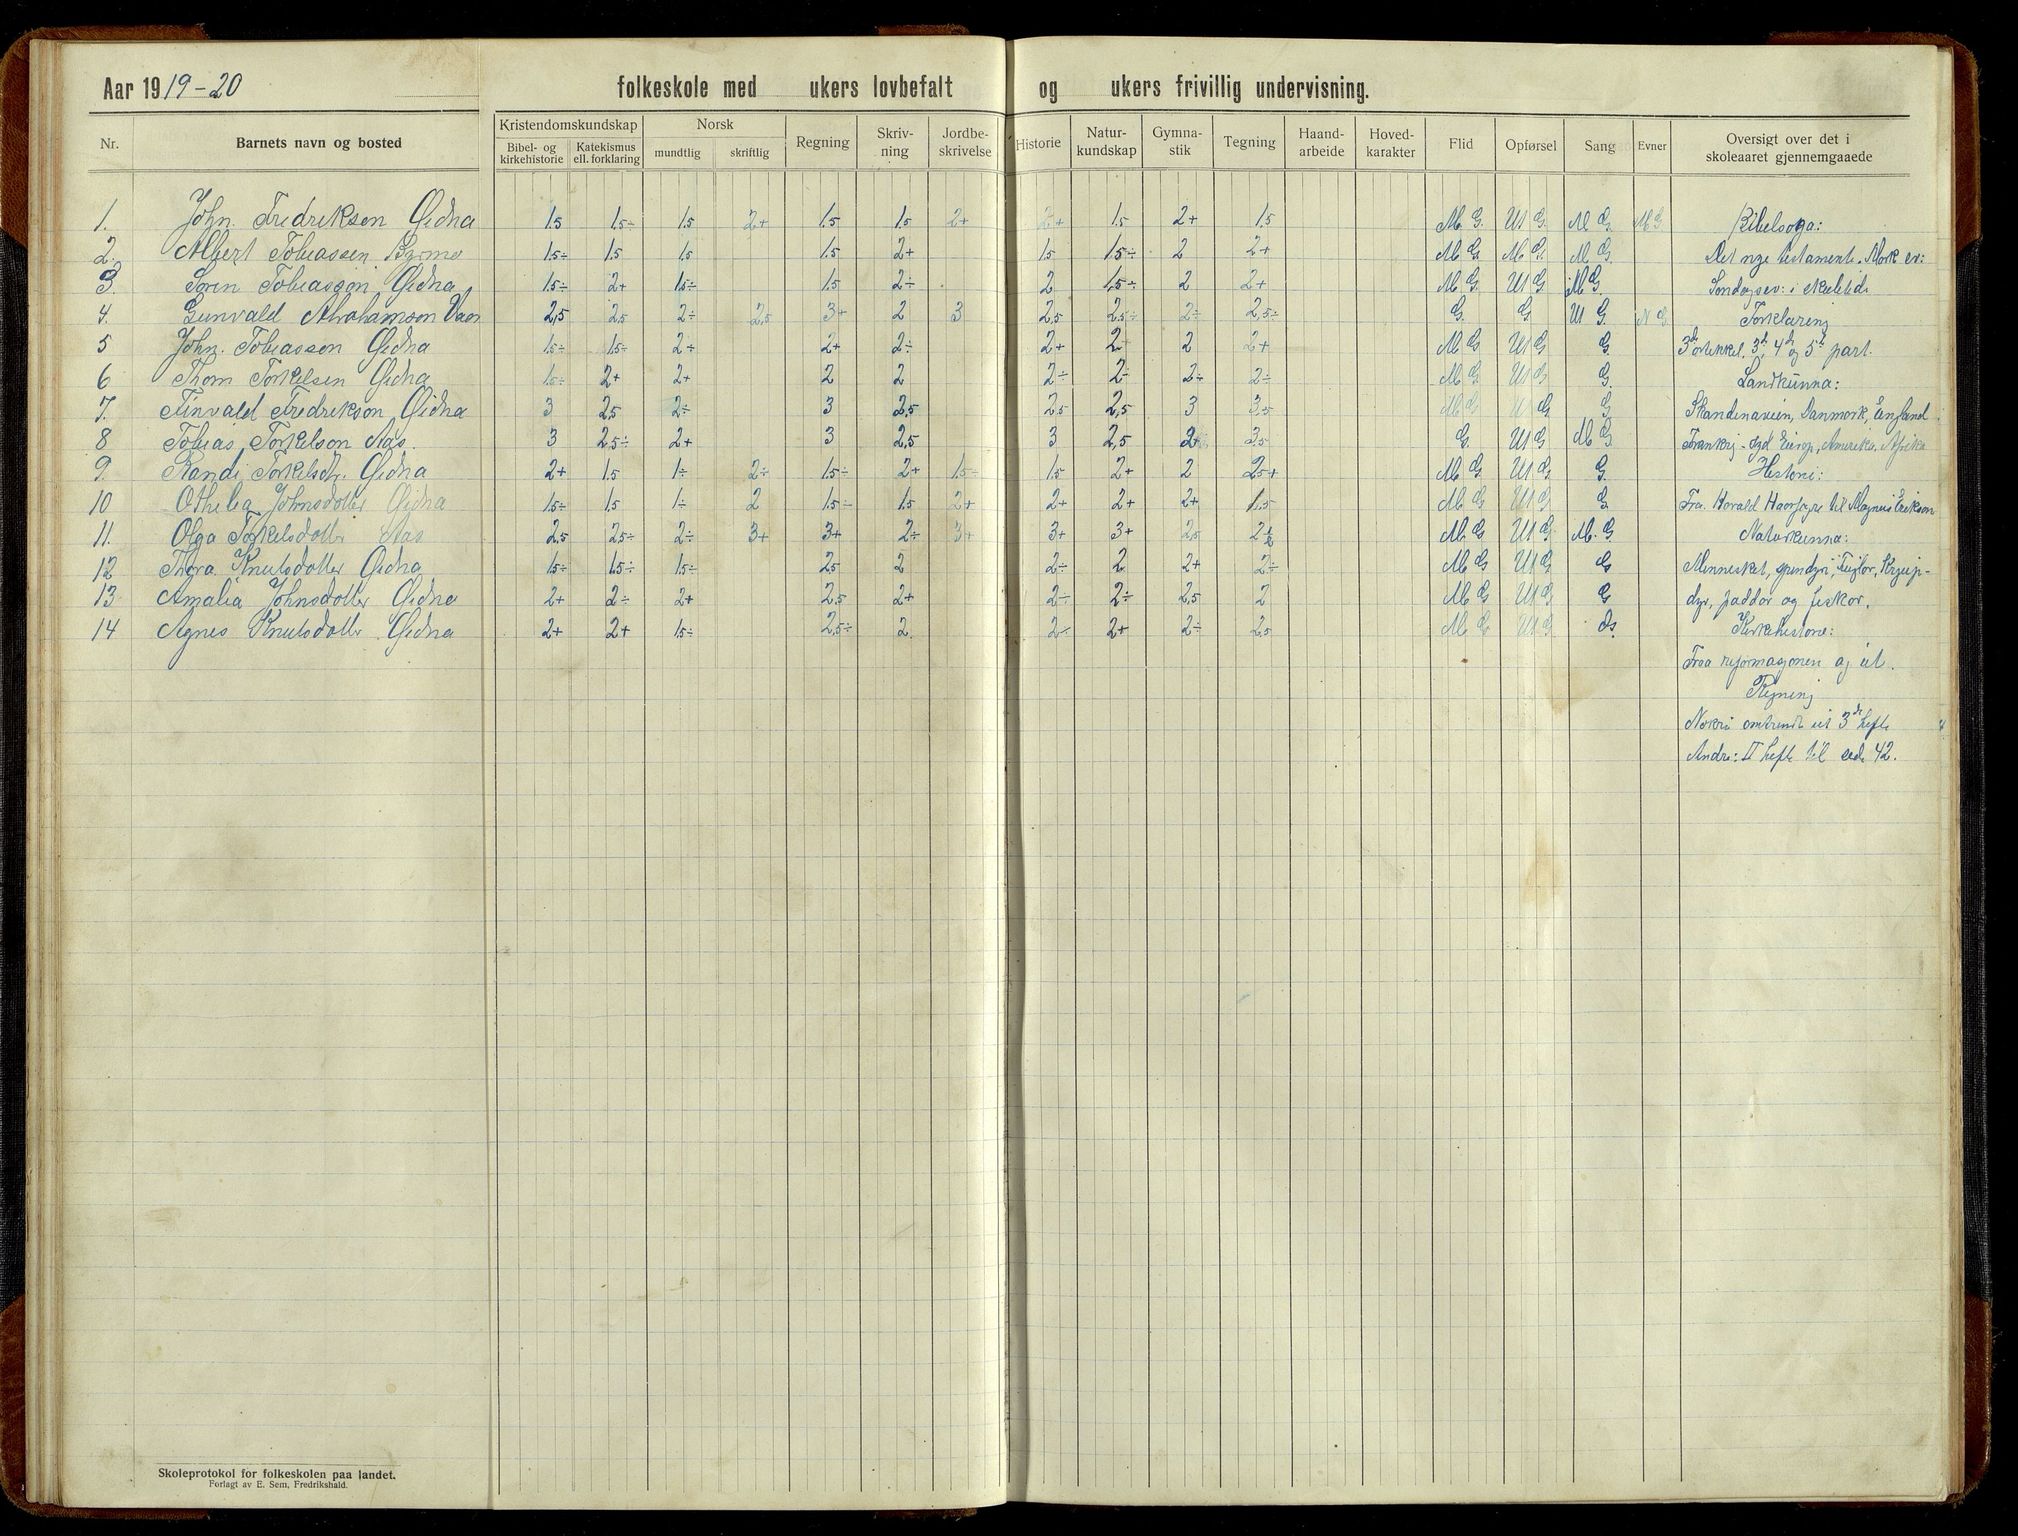 Aar 1919-20 folkeskole med ukers lovbefalt og ukers frivillig undervisning.
Nr. Barnets navn og bosted Kristendomskundskap Norsk Regning Skriv-ning Jordbe-skrivelse Historie Natur-kundskap Gymna-stik Tegning Haand-arbeide Hoved-karakter Flid Opførsel Sang Evner Oversigt over det i skoleaaret gjennemgaaede
Bibel- og kirkehistorie Katekismus ell. forklaring mundtlig skriftlig
1. John. Fredrikson Øidna 1.5 1.5÷ 1.5 2+ 1.5 1.5 2+ 2+ 1.5 2+ 1.5 M G. Ut G. M G. M G Bibelsoga:
2. Albert Tobiassen 1.5÷ 1.5 1.5 1.5 2+ 1.5 1.5÷ 2 2+ M G. M G. M G. Det nye testamente. Mark ev:
3. Søren Tobiasson Øidna 1.5÷ 2+ 1.5÷ 1.5 2÷ 2 1.5÷ 2 2+ M G. Ut G M G. Søndagsev: i
4. Gunvald Abrahamson Vaas 2,5 2,5 2÷ 2,5 3+ 2 3 2,5 2,5÷ 2÷ 2,5÷ G. G. Ut G. G. Forklaring
5 John. Tobiasson Øidna 1.5÷ 1.5÷ 2+ 2+ 2÷ 2+ 2 2 2+ M G Ut G G. 3d artikkel. 3d, 4d og 5t part.
6 Thom Torkelsen Øidna 1.5÷ 2+ 2+ 2 2 2÷ 2÷ 2÷ 2÷ M G. Ut G G. Landkunna:
7. Finvald Fredrikson Øidna 3 2,5 2÷ 3 2,5 2,5 2,5 3 3,5 M G Ut G G Skandinavien, Danmork, England
8 Tobias Torkelson Aas. 3 2,5÷ 2+ 3 2,5 3 2,5 2+ 3,5 G. Ut G M G Amerika, Afrika
9. Randi Torkelsdtr. Øidna 2+ 1.5 1÷ 2÷ 1.5÷ 2+ 1.5÷ 1.5 2+ 2 2,5+ M G Ut G. G. Historie:
10 Othilia Johnsdotter Øidna 1.5÷ 1.5 1÷ 2 1.5÷ 1.5 2+ 2+ 2+ 2+ 1.5 M G Ut G G Fra Harald Haarfagre til Magnus Erikson
11. Olga Torkelsdotter Aas 2,5 2,5÷ 2÷ 3+ 3+ 2÷ 3+ 3+ 3+ 2,5 2½ M G Ut G M. G Naturkunna:
12 Thora Knutsdotter Øidna 1.5÷ 1.5÷ 1.5÷ 2,5 2 2÷ 2 2+ 2÷ M G Ut G G Mennesket, spendyr, Fuglar, Krjup-
13. Amalia Johnsdotter Øidna 2+ 2÷ 2+ 2,5 2+ 2÷ 2÷ 2,5 2 M G Ut G G dyr, paddor og fiskar.
14 Agnes Knutsdotter Øidna 2+ 2+ 1.5÷ 2,5÷ 2 2÷ 2+ 2÷ 2,5 M G Ut G G. Kirkehistorie:
Fraa reformasjonen og ut.
Regning
Nokre omtrendt ut 3de hefte
Andre: II hefte til side 42.
Skoleprotokol for folkeskolen paa landet.
Forlagt av E. Sem, Fredrikshald.